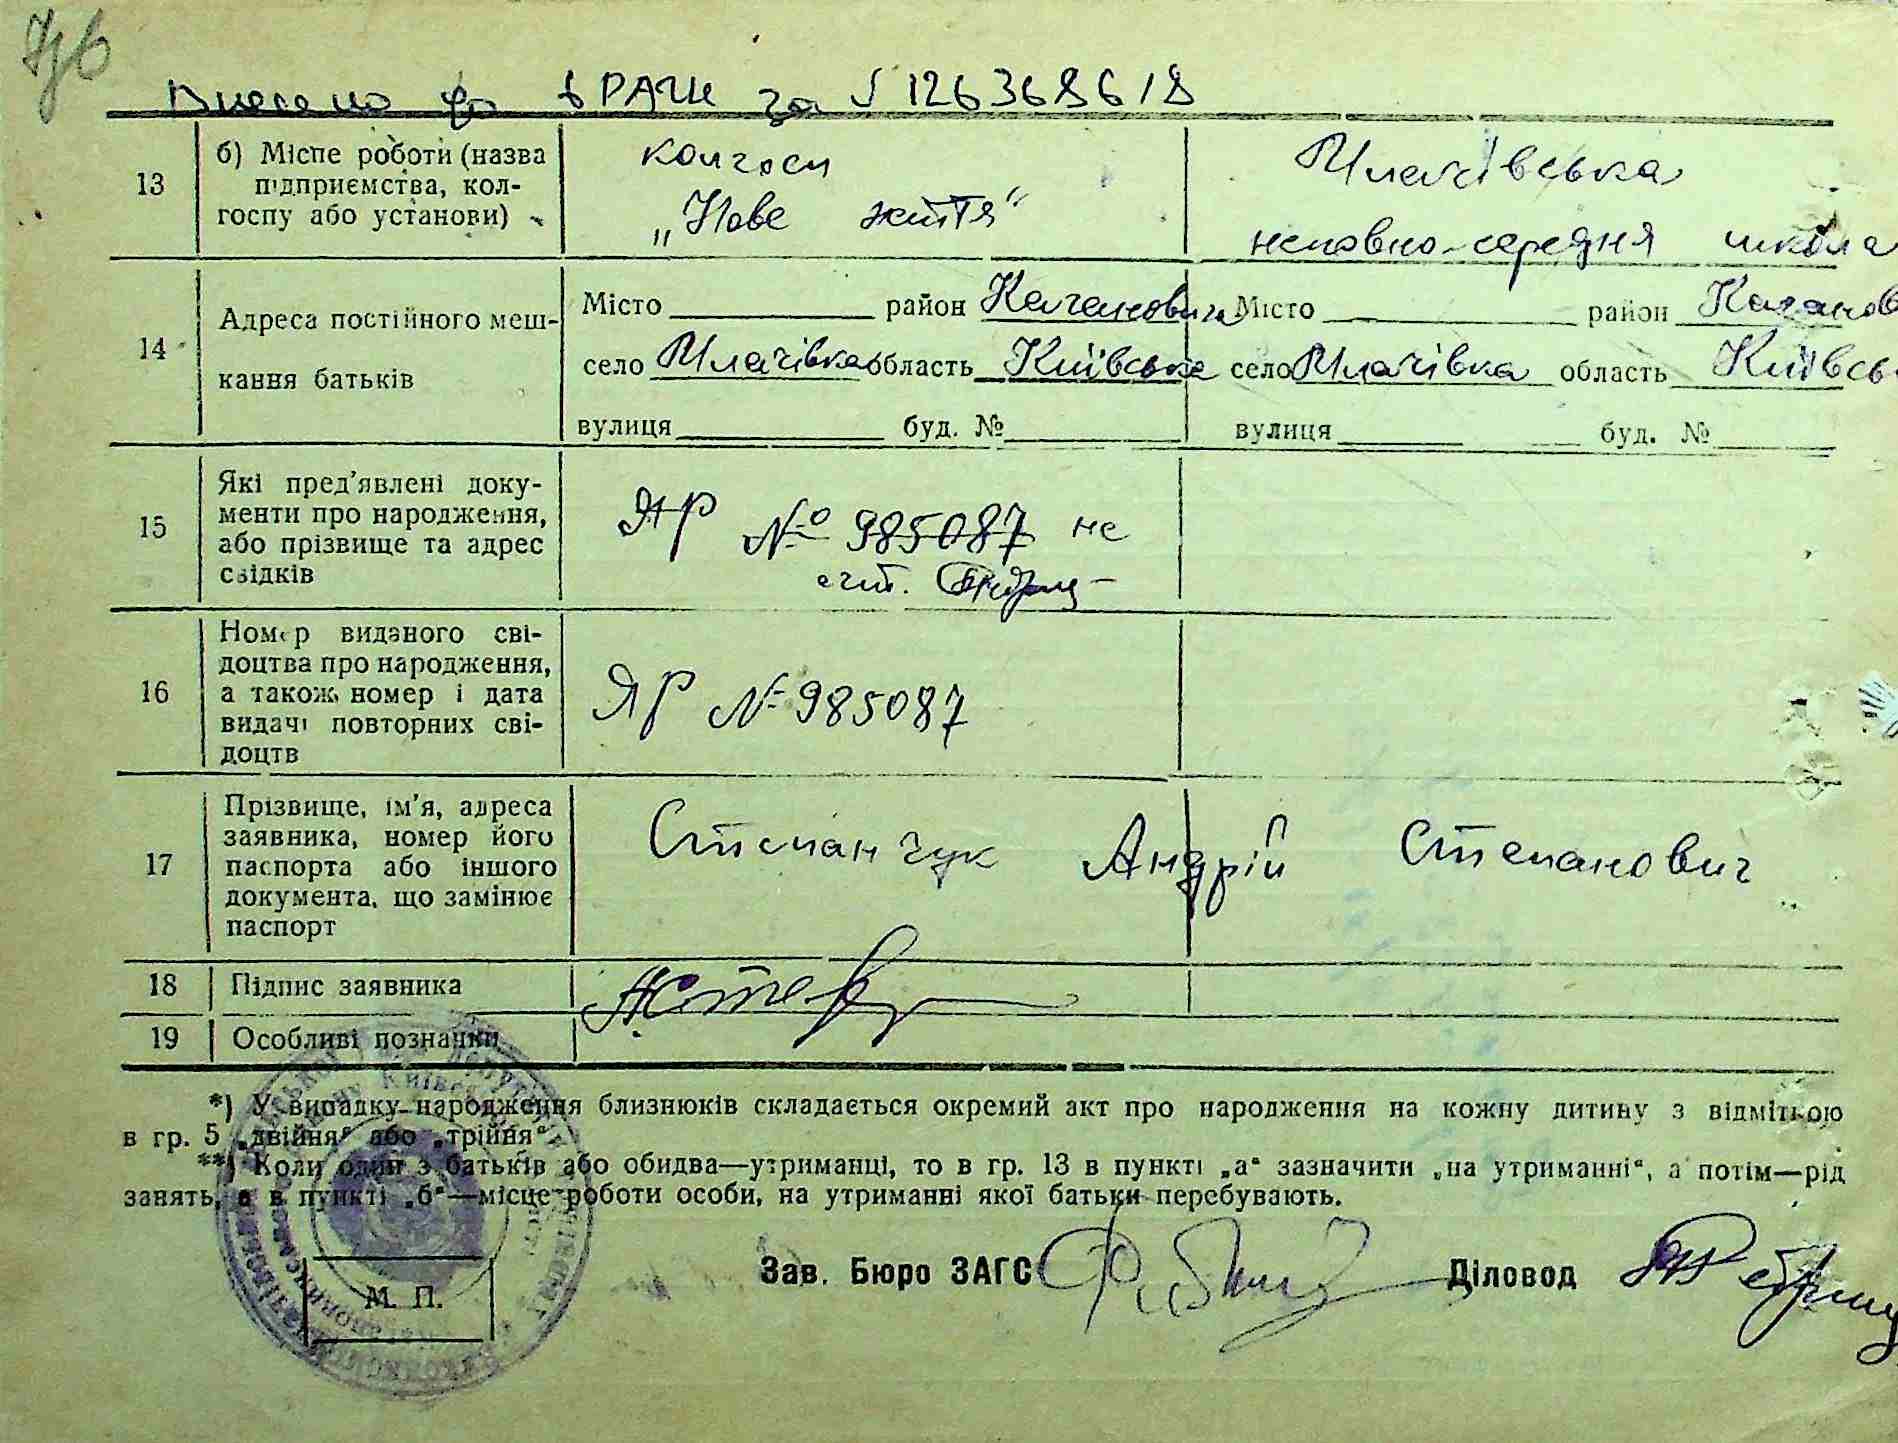 Внесено до ДРАЦС за № 126368618
13
б) Місце роботи (назва
підприємства, кол-
госпу або установи)
колгосп
„Нове життя“
Плачівська
неповно-середня школа
14
Адреса постійного меш-
кання батьків
Місто район Кагановича
село Плачівка область Київська
вулиця буд. №
Місто район Каганов
село Плачівка область Київсь
вулиця буд. №
15
Які пред'явлені доку-
менти про народження,
або прізвище та адрес
свідків
ЯР № 985087 не
счит.
16
Номер виданого сві-
доцтва про народження,
а також номер і дата
видачі повторних сві-
доцтв
ЯР № 985087
17
Прізвище, ім'я, адреса
заявника, номер його
паспорта або іншого
документа, що замінює
паспорт
Степанчук Андрій Степанович
18 Підпис заявника
19 Особливі позначки
*) У випадку народження близнюків складається окремий акт про народження на кожну дитину з відміткою
в гр. 5 „двійня“ або „трійня“.
**) Коли один з батьків або обидва—утриманці, то в гр. 13 в пункті „а“ зазначити „на утриманні“, а потім—рід
занять, а в пункті „б“—місце роботи особи, на утриманні якої батьки перебувають.
Зав. Бюро ЗАГС Діловод
М. П.